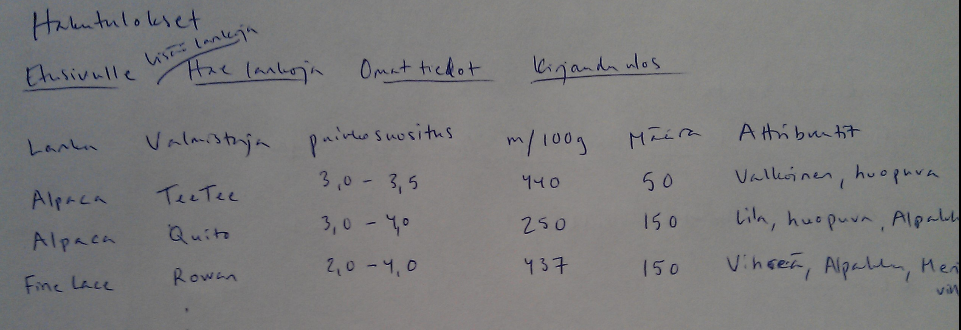 Hakutulokset
Etusivulle Listää lankoja Hae lankoja Omat tiedot Kirjaudu ulos
Lanka Valmistaja puikkosuositus m/100g Määrä Attribuutit
Alpaca TeeTee 3,0 - 3,5 440 50 Valkoinen, huopuva
Alpaca Quito 3,0 - 4,0 250 150 Lila, huopuva, Alpakk
Fine Lace Rowan 2,0 - 4,0 437 150 Vihreä, Alpakka, Meri